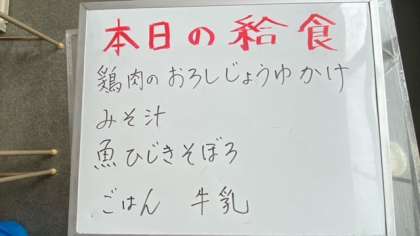 本日の給食
鶏肉のおろしじょうゆかけ
みそ汁
魚ひじきそぼろ
ごはん 牛乳